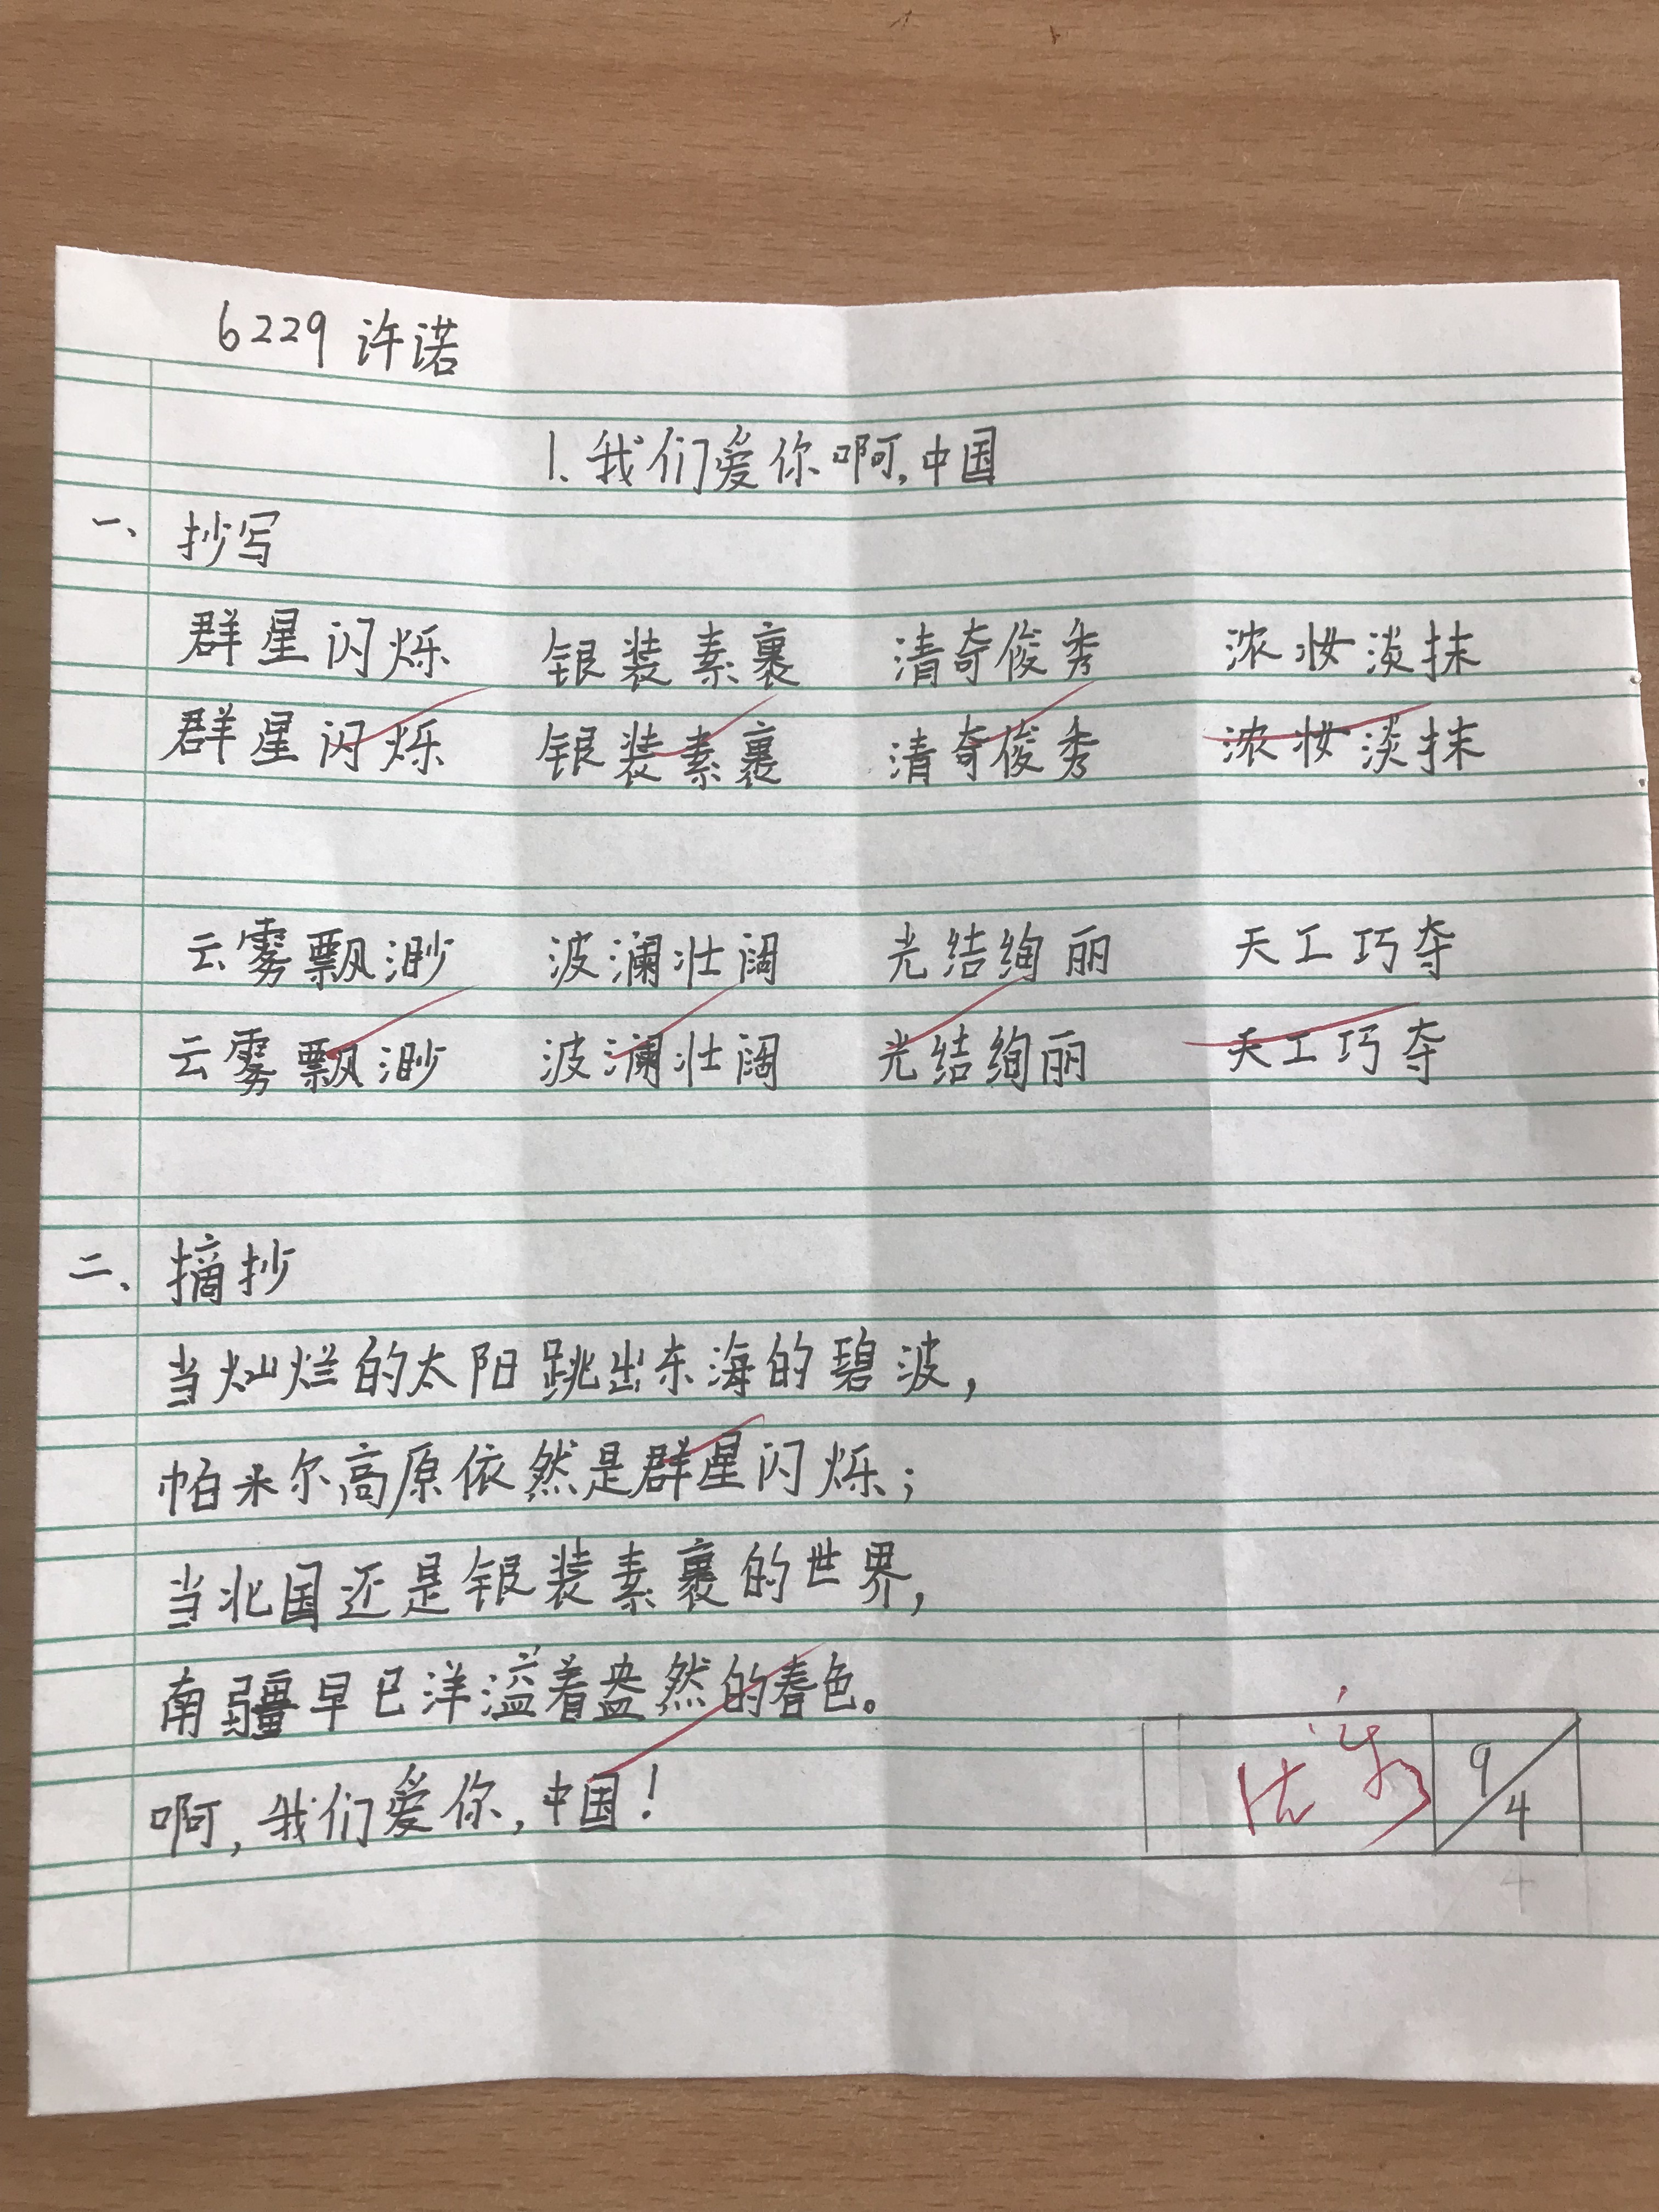 6229 许诺
1.我们爱你啊,中国
一、抄写
群星闪烁 银装素裹 清奇俊秀 浓妆淡抹
群星闪烁 银装素裹 清奇俊秀 浓妆淡抹
云雾飘渺 波澜壮阔 光结绚丽 天工巧夺
云雾飘渺 波澜壮阔 光结绚丽 天工巧夺
二、摘抄
当灿烂的太阳跳出东海的碧波,
帕米尔高原依然是群星闪烁;
当北国还是银装素裹的世界,
南疆早已洋溢着盎然的春色。
啊,我们爱你,中国!
优 9/4